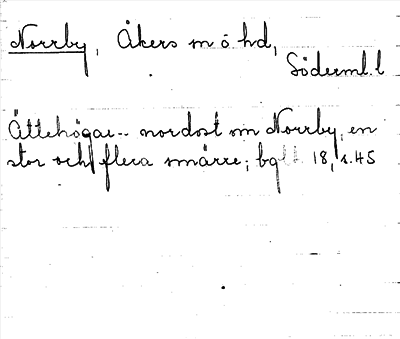 Norrby, Åkers m ö hd,
Söderml. l
Ättehögar-- nordost om Norrby, en
stor och flera smärre; bgl 18, s. 45